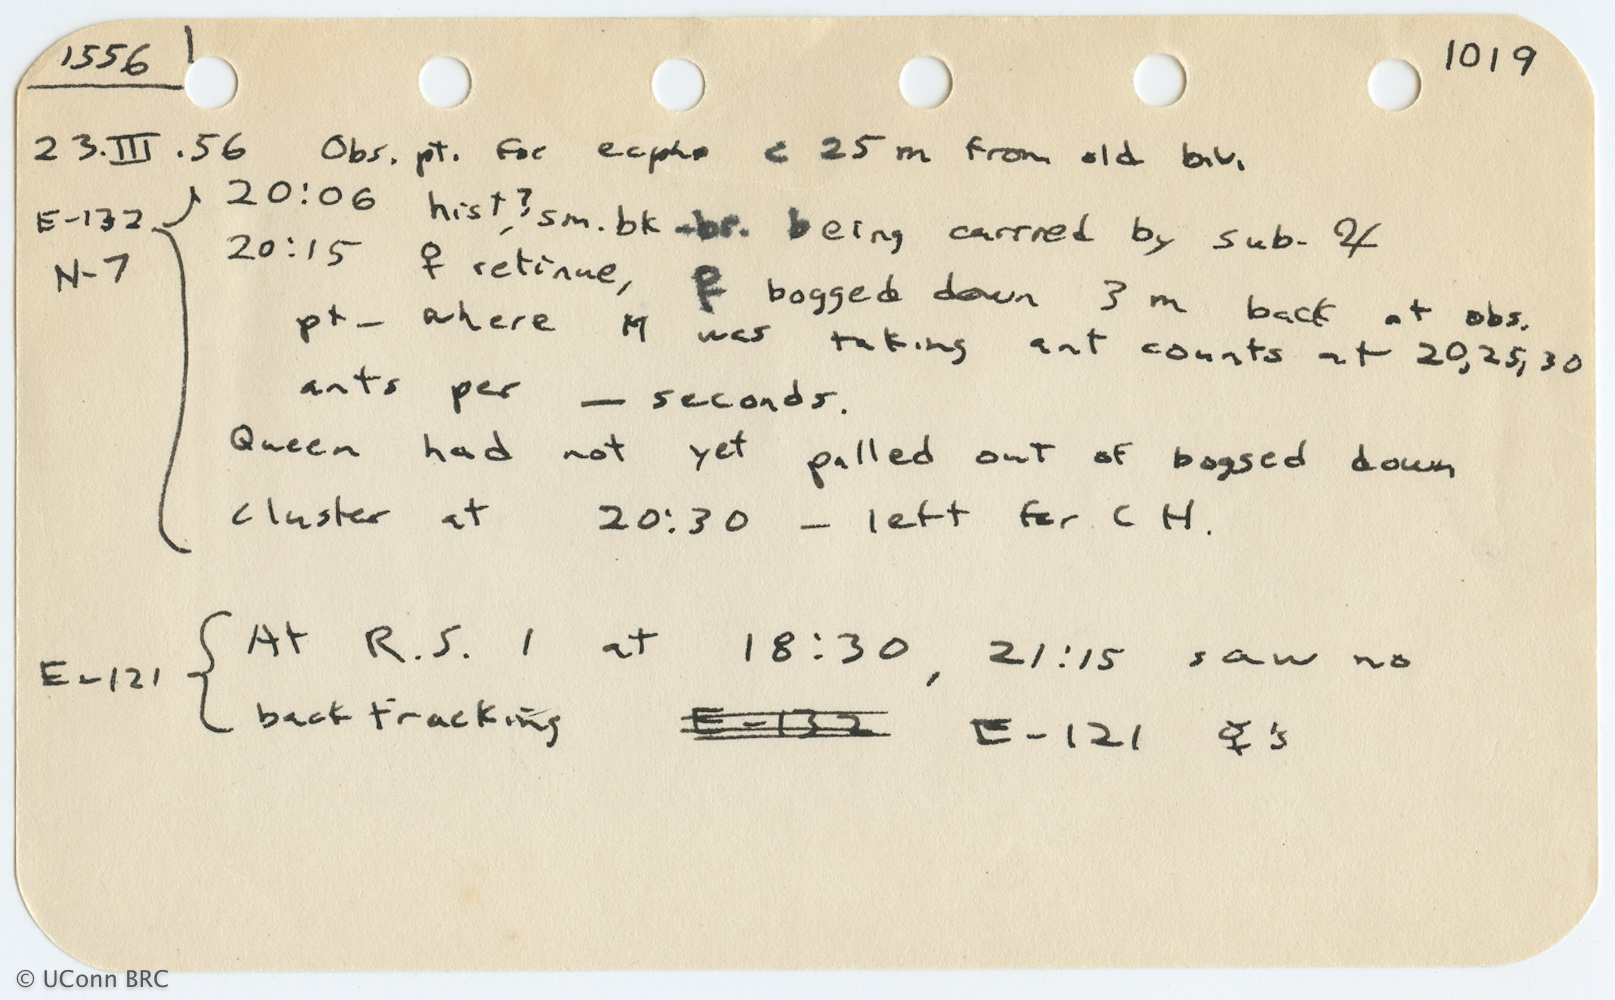 1556
1019
23.III.56 Obs. pt. for ecpho c 25 m from old biv.
E-132
N-7
20:06 hist? sm. bk-br. being carried by sub-♃
20:15 ♀ retinue, ♀ bogged down 3 m back at obs.
pt – where M was taking ant counts at 20, 25, 30
ants per — seconds.
Queen had not yet pulled out of bogged down
cluster at 20:30 – left for C H.
E-121
At R.S. 1 at 18:30, 21:15 saw no
backtracking E-132 E-121 ☿'s
© UConn BRC